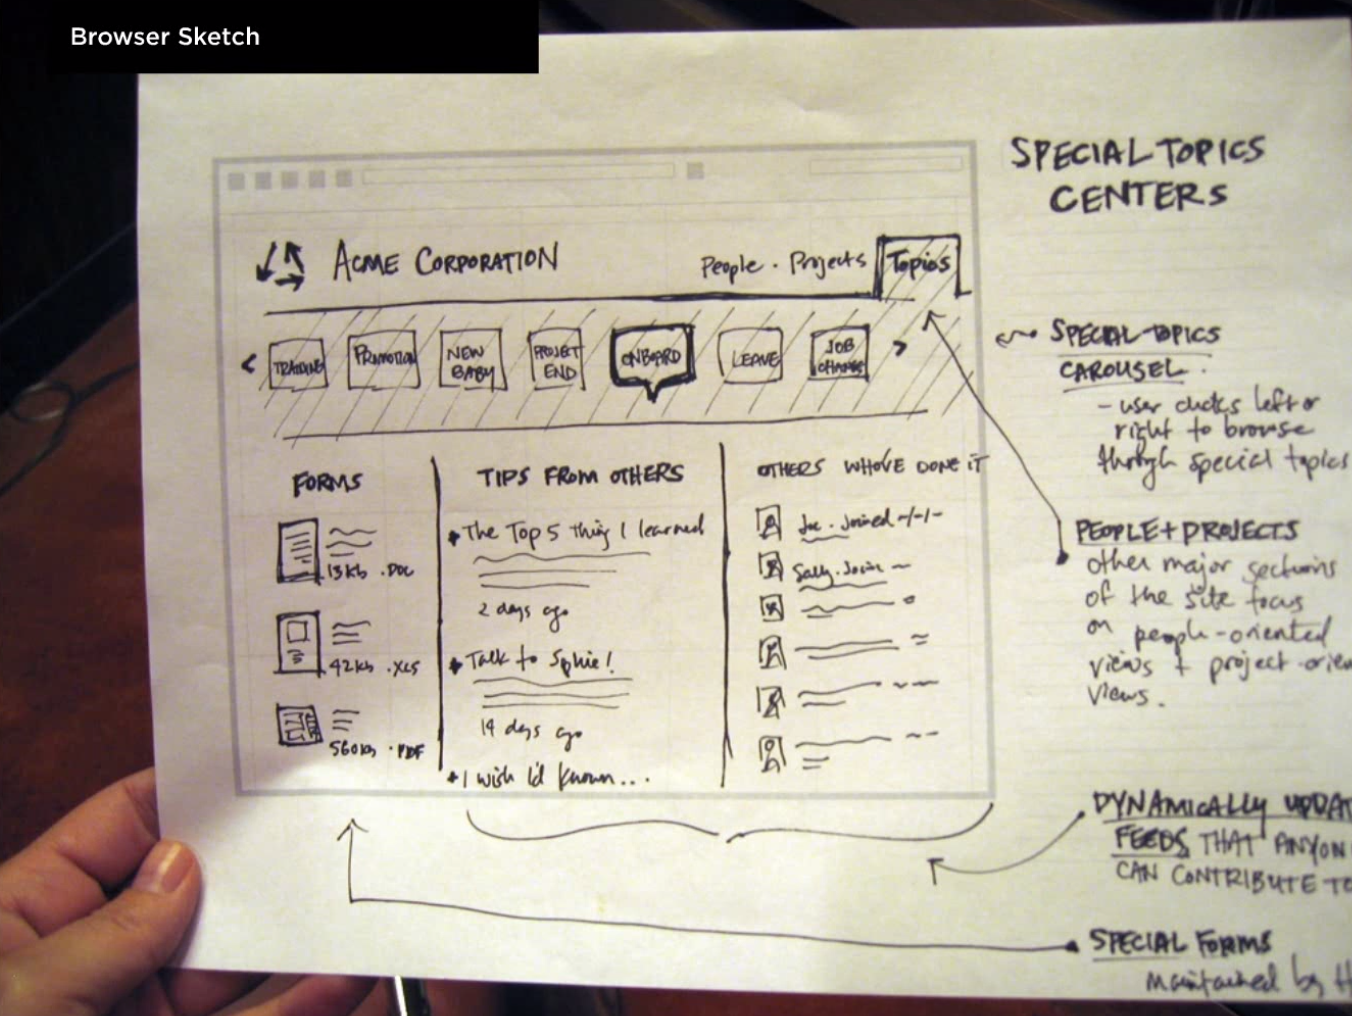 Browser Sketch
SPECIAL TOPICS
CENTERS
ACME CORPORATION
People . Projects
Topics
< TRAINING PROMOTION NEW BABY PROJECT END ONBOARD LEAVE JOB CHANGE >
FORMS
13kb .DOC
42kb .XLS
560kb .PDF
TIPS FROM OTHERS
The Top 5 Thing I learned
2 days ago
Talk to Sophie!
14 days ago
I wish I'd known...
OTHERS WHO'VE DONE IT
Joe. Joined -/-/-
Sally. Join
SPECIAL TOPICS
CAROUSEL.
- user clicks left or
right to browse
through special topics
PEOPLE + PROJECTS
other major sections
of the site focus
on people-oriented
views + project-orien
views.
DYNAMICALLY UPDAT
FEEDS THAT ANYON
CAN CONTRIBUTE TO
SPECIAL FORMS
maintained by H